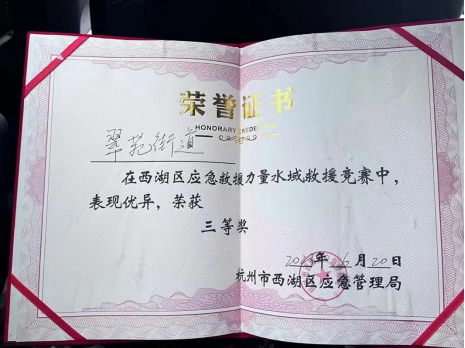 荣誉证书
HONORARY CREDENTIAL
翠苑街道
在西湖区应急救援力量水域救援竞赛中，
表现优异，荣获
三等奖
年6月20日
杭州市西湖区应急管理局